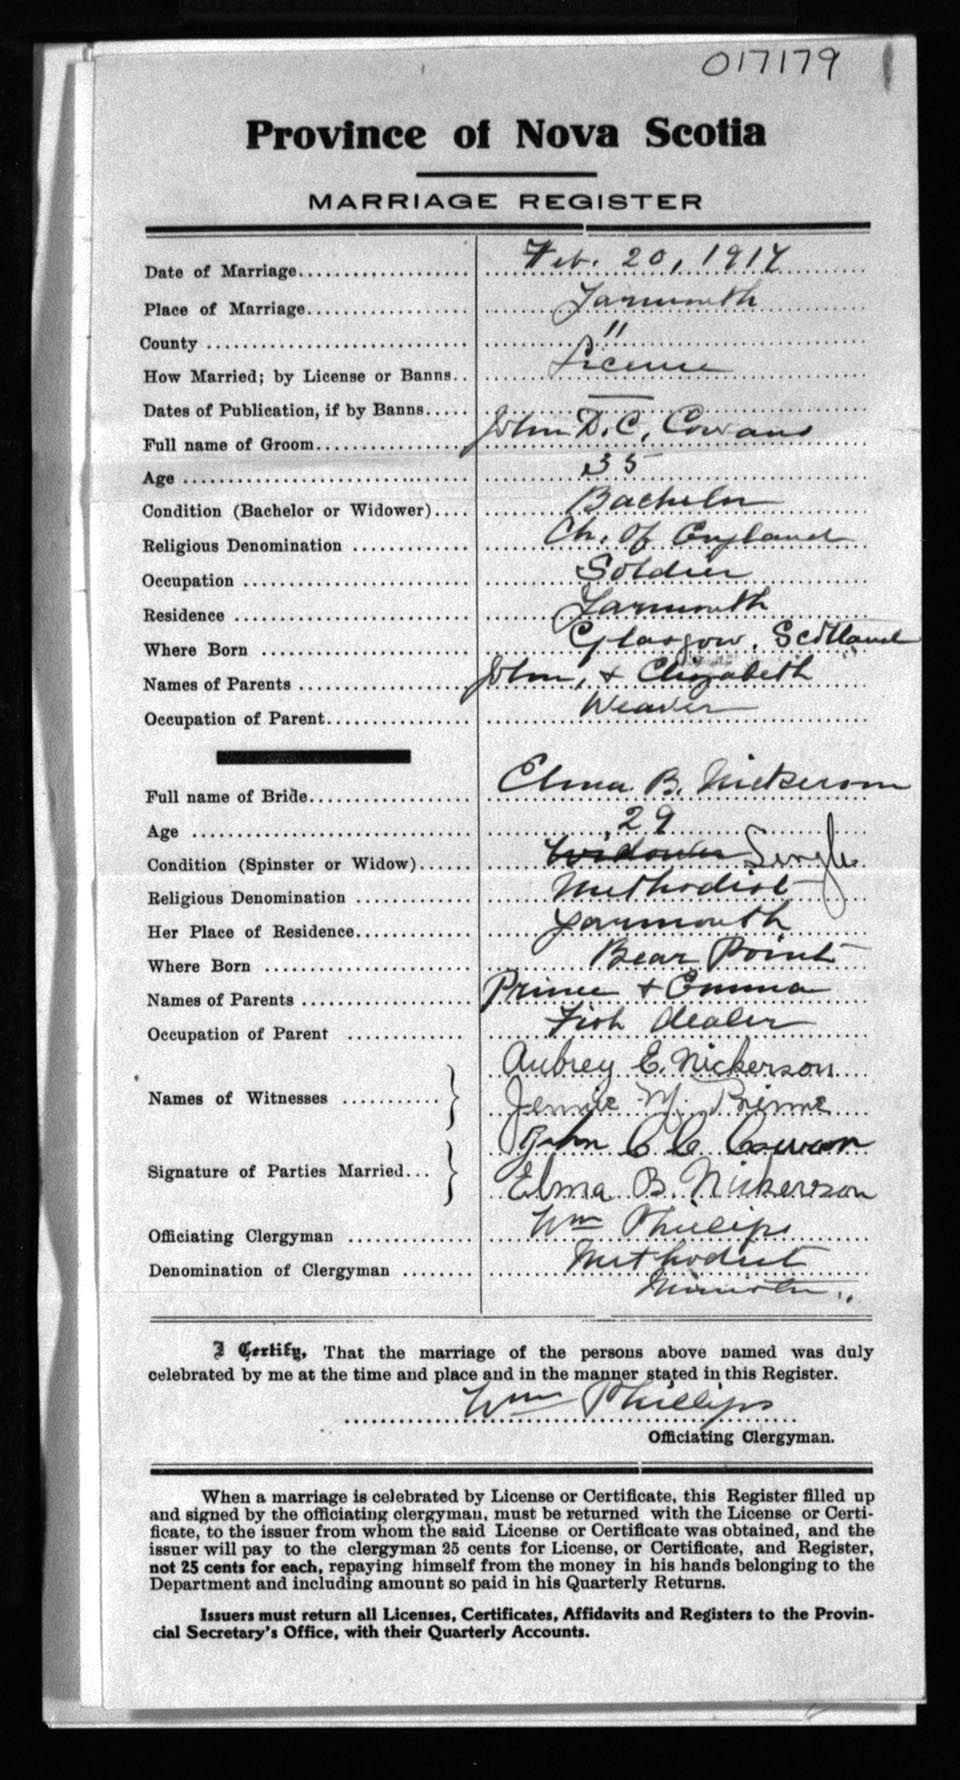 017179
Province of Nova Scotia
MARRIAGE REGISTER
Date of Marriage Feb. 20, 1917
Place of Marriage Yarmouth
County "
How Married; by License or Banns License
Dates of Publication, if by Banns —
Full name of Groom John D. C. Cowans
Age 35
Condition (Bachelor or Widower) Bachelor
Religious Denomination Ch. of England
Occupation Soldier
Residence Yarmouth
Where Born Glasgow, Scotland
Names of Parents John, & Elizabeth
Occupation of Parent Weaver
Full name of Bride Elma B. Nickerson
Age 29
Condition (Spinster or Widow) Widower Single
Religious Denomination Methodist
Her Place of Residence Yarmouth
Where Born Bear Point
Names of Parents Prince & Emma
Occupation of Parent Fish dealer
Names of Witnesses Aubrey E. Nickerson
Jennie M. Prime
Signature of Parties Married John C C Cowan
Elma B. Nickerson
Officiating Clergyman Wm Phillips
Denomination of Clergyman Methodist
Minister
I Certify, That the marriage of the persons above named was duly
celebrated by me at the time and place and in the manner stated in this Register.
Wm Phillips
Officiating Clergyman.
When a marriage is celebrated by License or Certificate, this Register filled up
and signed by the officiating clergyman, must be returned with the License or Certi-
ficate, to the issuer from whom the said License or Certificate was obtained, and the
issuer will pay to the clergyman 25 cents for License, or Certificate, and Register,
not 25 cents for each, repaying himself from the money in his hands belonging to the
Department and including amount so paid in his Quarterly Returns.
Issuers must return all Licenses, Certificates, Affidavits and Registers to the Provin-
cial Secretary's Office, with their Quarterly Accounts.